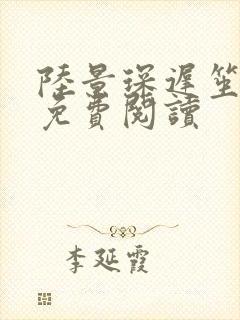 陸景琛遲笙
免費閱讀
李延霞